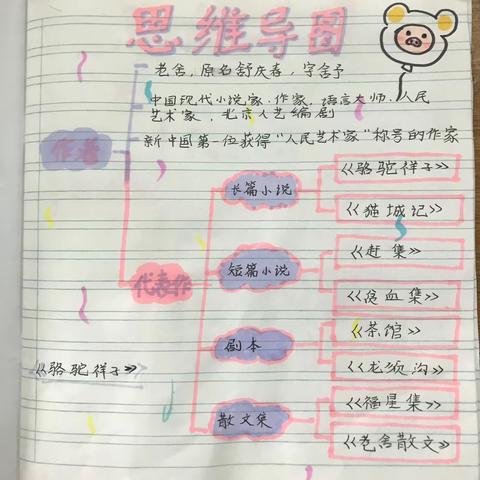 思维导图
老舍，原名舒庆春，字舍予
中国现代小说家、作家，语言大师、人民
艺术家，北京人艺编剧
新中国第一位获得“人民艺术家”称号的作家
作者
长篇小说
《骆驼祥子》
《猫城记》
代表作
短篇小说
《赶集》
《贫血集》
剧本
《茶馆》
《龙须沟》
《骆驼祥子》
散文集
《福星集》
《老舍散文》